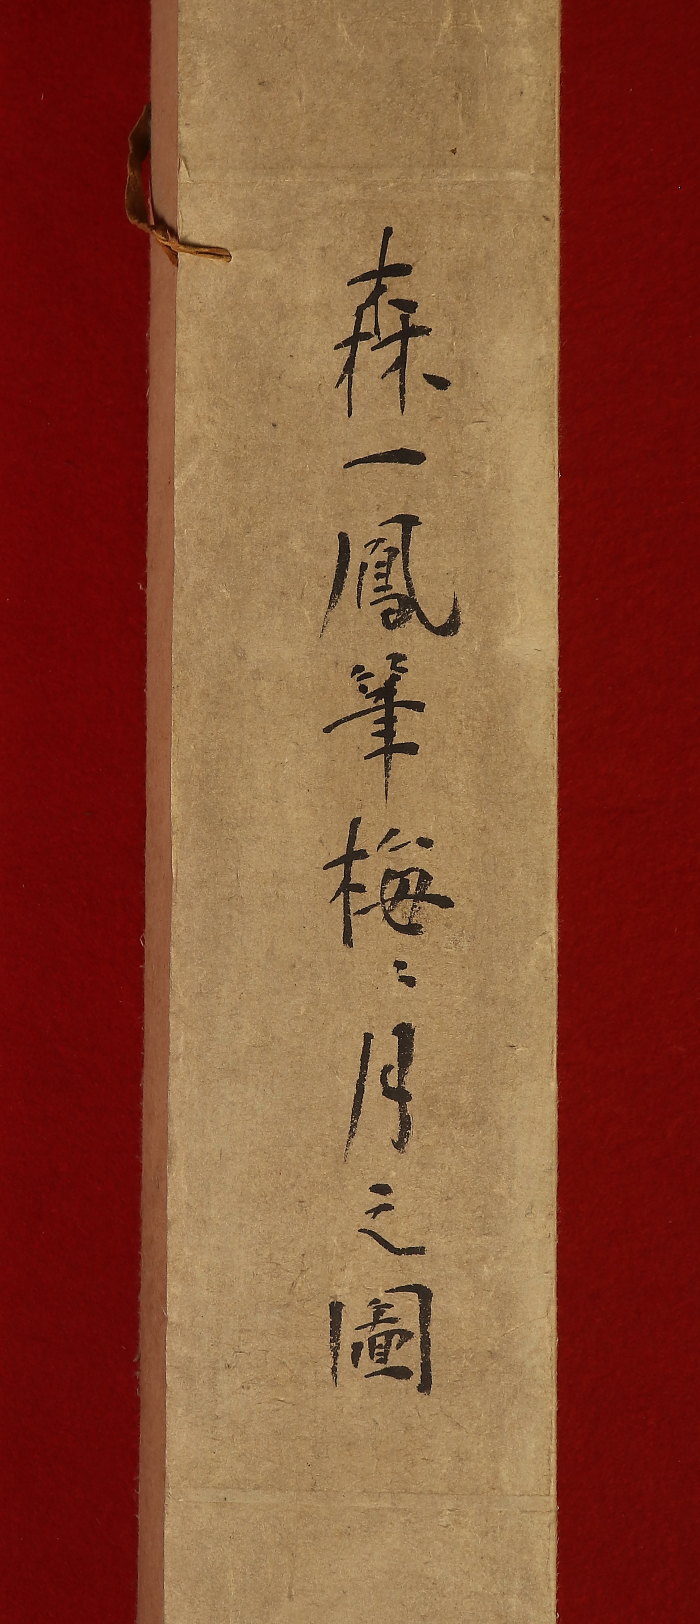 森一鳳筆梅ニ月之圖